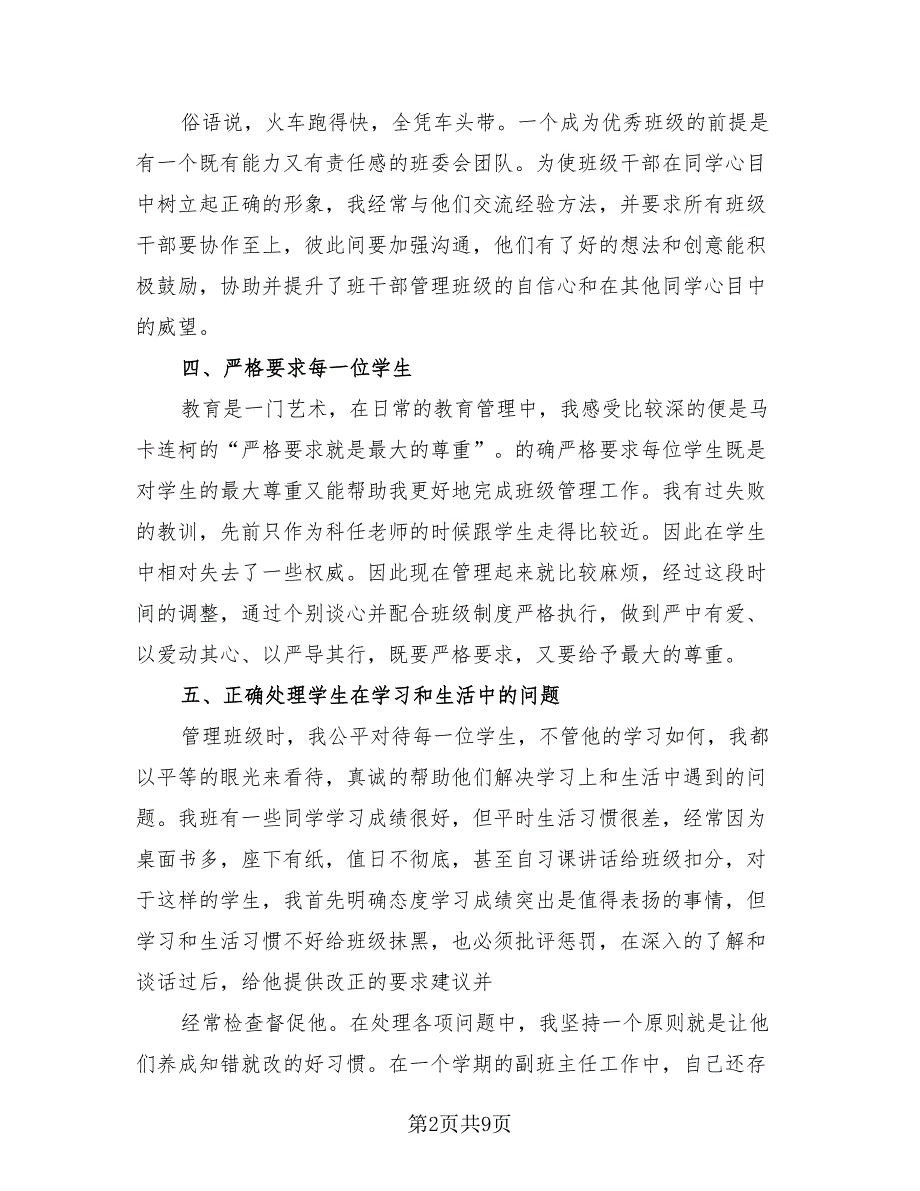 俗语说，火车跑得快，全凭车头带。一个成为优秀班级的前提是
有一个既有能力又有责任感的班委会团队。为使班级干部在同学心目
中树立起正确的形象，我经常与他们交流经验方法，并要求所有班级
干部要协作至上，彼此间要加强沟通，他们有了好的想法和创意能积
极鼓励，协助并提升了班干部管理班级的自信心和在其他同学心目中
的威望。
四、严格要求每一位学生
教育是一门艺术，在日常的教育管理中，我感受比较深的便是马
卡连柯的“严格要求就是最大的尊重”。的确严格要求每位学生既是
对学生的最大尊重又能帮助我更好地完成班级管理工作。我有过失败
的教训，先前只作为科任老师的时候跟学生走得比较近。因此在学生
中相对失去了一些权威。因此现在管理起来就比较麻烦，经过这段时
间的调整，通过个别谈心并配合班级制度严格执行，做到严中有爱、
以爱动其心、以严导其行，既要严格要求，又要给予最大的尊重。
五、正确处理学生在学习和生活中的问题
管理班级时，我公平对待每一位学生，不管他的学习如何，我都
以平等的眼光来看待，真诚的帮助他们解决学习上和生活中遇到的问
题。我班有一些同学学习成绩很好，但平时生活习惯很差，经常因为
桌面书多，座下有纸，值日不彻底，甚至自习课讲话给班级扣分，对
于这样的学生，我首先明确态度学习成绩突出是值得表扬的事情，但
学习和生活习惯不好给班级抹黑，也必须批评惩罚，在深入的了解和
谈话过后，给他提供改正的要求建议并
经常检查督促他。在处理各项问题中，我坚持一个原则就是让他
们养成知错就改的好习惯。在一个学期的副班主任工作中，自己还存
第2页共9页